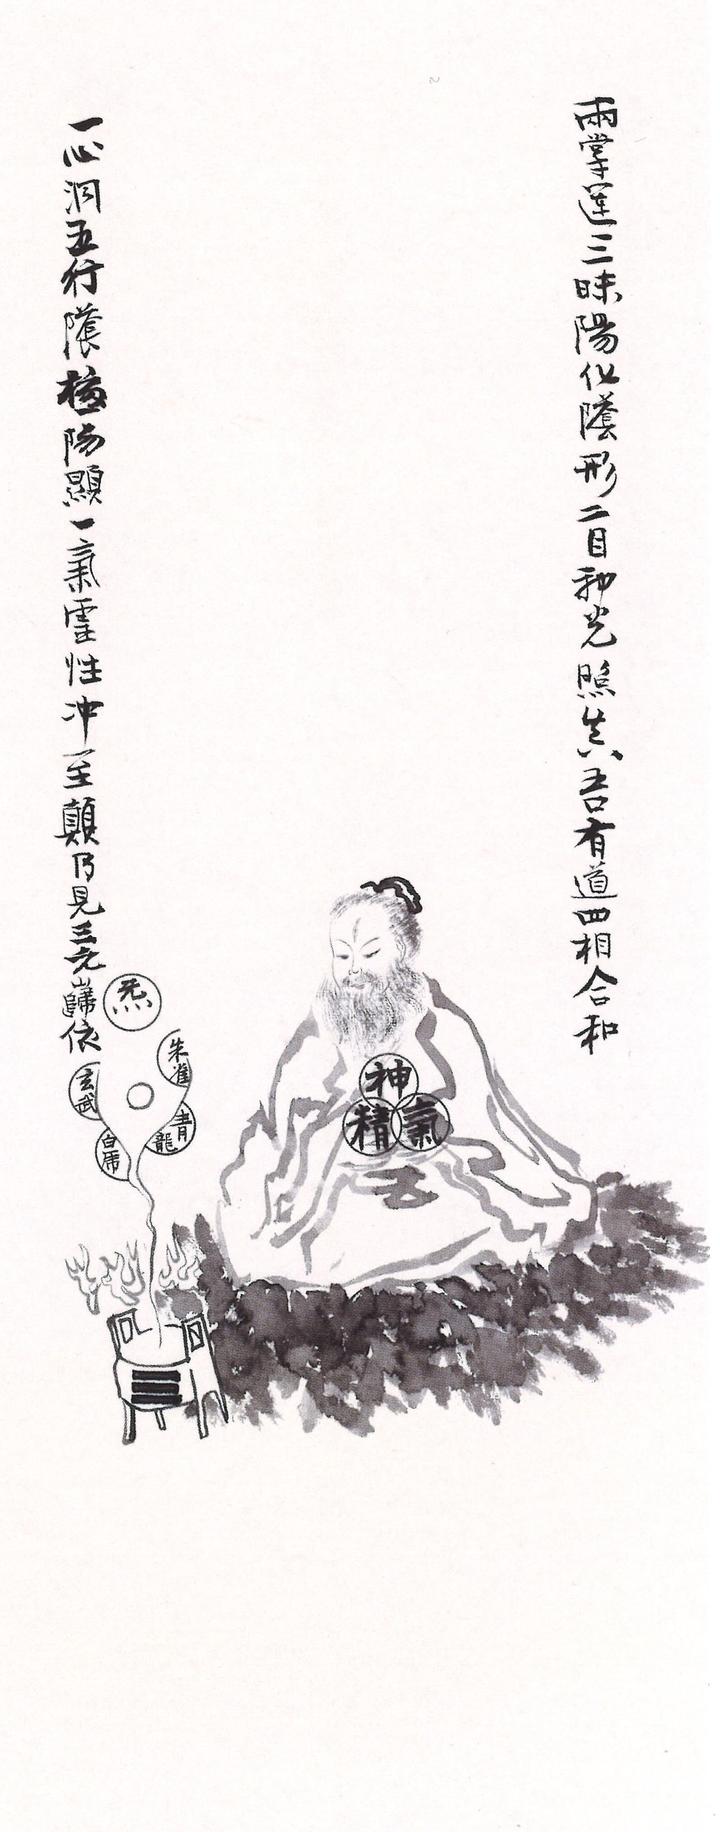 兩掌運三昧陽化陰形二目神光照真吾有道四相合和
一心洞五行陰極陽顯一氣靈性冲至顛乃見三元歸依
炁
朱雀
玄武
青龍
白虎
神
精
氣